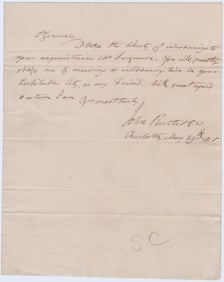 General
I take the liberty of introducing to
your acquaintance Mr Ferguson. You will greatly
oblige me by receiving & introducing him in your
hospitable City, as my friend. With great regard
& esteem I am Yrs most truly
John
Charleston May 29th
SC